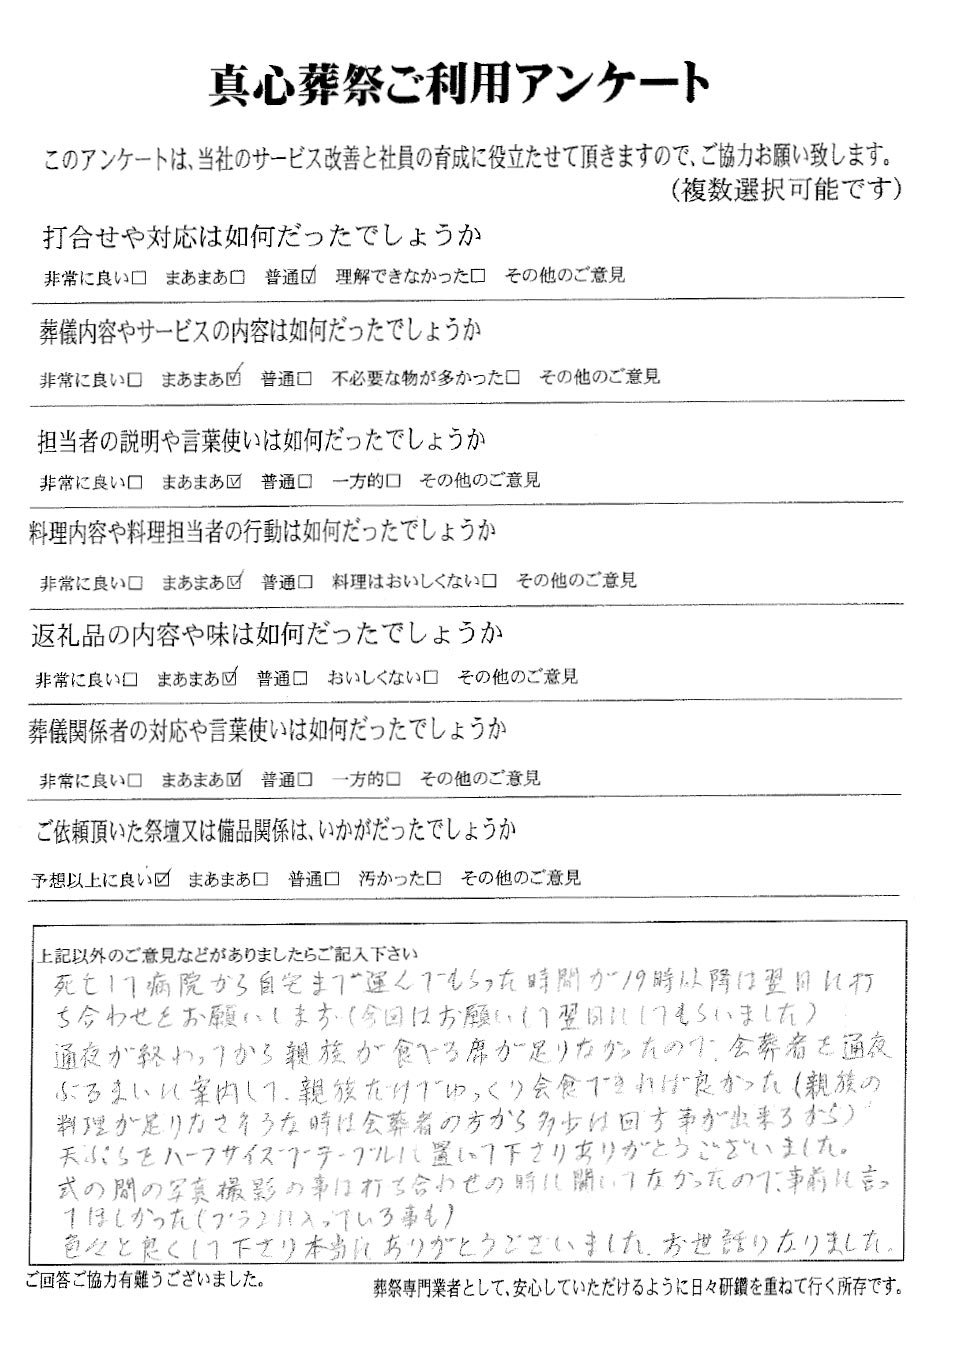 真心葬祭ご利用アンケート
このアンケートは、当社のサービス改善と社員の育成に役立たせて頂きますので、ご協力お願い致します。
(複数選択可能です)
打合せや対応は如何だったでしょうか
非常に良い□ まあまあ□ 普通☑ 理解できなかった□ その他のご意見
葬儀内容やサービスの内容は如何だったでしょうか
非常に良い□ まあまあ☑ 普通□ 不必要な物が多かった□ その他のご意見
担当者の説明や言葉使いは如何だったでしょうか
非常に良い□ まあまあ☑ 普通□ 一方的□ その他のご意見
料理内容や料理担当者の行動は如何だったでしょうか
非常に良い□ まあまあ☑ 普通□ 料理はおいしくない□ その他のご意見
返礼品の内容や味は如何だったでしょうか
非常に良い□ まあまあ☑ 普通□ おいしくない□ その他のご意見
葬儀関係者の対応や言葉使いは如何だったでしょうか
非常に良い□ まあまあ☑ 普通□ 一方的□ その他のご意見
ご依頼頂いた祭壇又は備品関係は、いかがだったでしょうか
予想以上に良い☑ まあまあ□ 普通□ 汚かった□ その他のご意見
上記以外のご意見などがありましたらご記入下さい
死亡して病院から自宅まで運んでもらった時間が19時以降は翌日に打
ち合わせをお願いします(今回はお願いして翌日にしてもらいました)
通夜が終わってから親族が食べる席が足りなかったので、会葬者を通夜
ぶるまいに案内して、親族だけでゆっくり会食できれば良かった(親族の
料理が足りなさそうな時は会葬者の方から多少は回す事が出来るから)
天ぷらをハーフサイズでテーブルに置いて下さりありがとうございました。
式の間の写真撮影の事は打ち合わせの時に聞いてなかったので、事前に言っ
てほしかった(プランに入っている事も)
色々と良くして下さり本当にありがとうございました。お世話になりました。
ご回答ご協力有難うございました。
葬祭専門業者として、安心していただけるように日々研鑽を重ねて行く所存です。